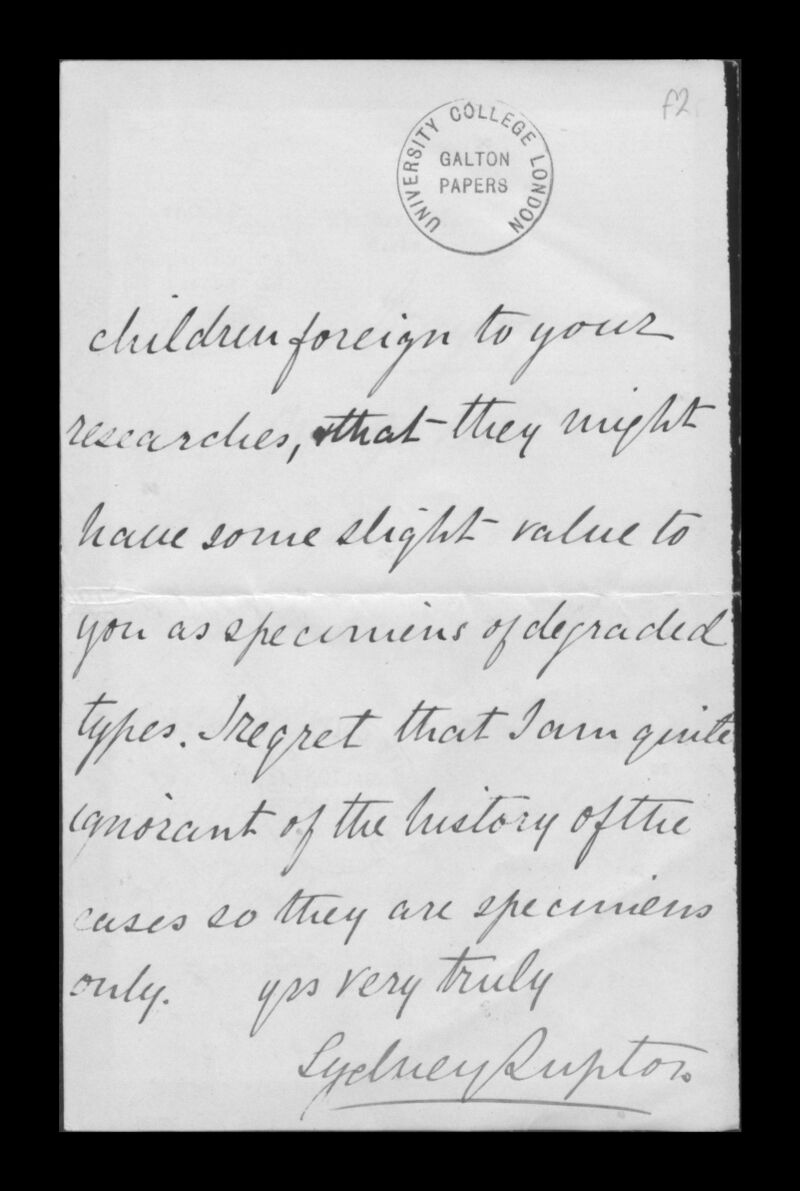 f2
UNIVERSITY COLLEGE LONDON
GALTON
PAPERS
children foreign to your
researches, that they might
have some slight value to
you as specimens of degraded
types. I regret that I am quite
ignorant of the history of the
cases so they are specimens
only. yrs very truly
Sydney Lupton